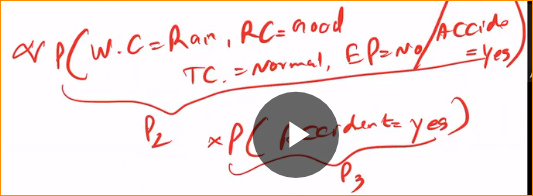 ∝ P(W.C = Rain, RC = Good
TC. = Normal, EP = No / Accide
= yes)
P2
× P(Accident = yes)
P3